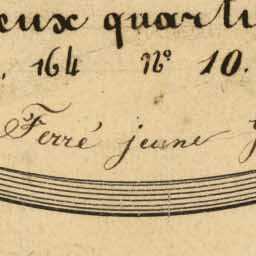 eux quarti
. 164 Nº 10.
Ferré jeune